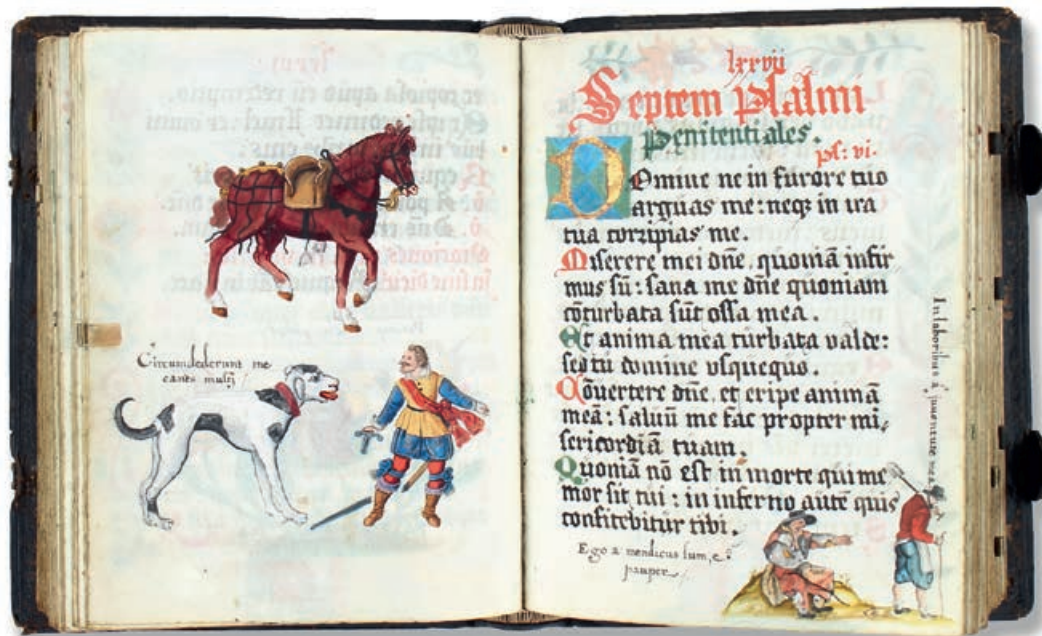 Circumdederunt me
canes multj
lxxvii
Septem Psalmi
Penitentiales.
ps: vi.
Domine ne in furore tuo
arguas me: neqꝫ in ira
tua corripias me.
Miserere mei dñe, quoniã infir
mus sũ: sana me dñe quoniam
cõturbata sũt ossa mea.
Et anima mea turbata valde:
sed tu domine vsquequo.
Cõvertere dñe, et eripe animã
meã: saluũ me fac propter mi,
sericordiã tuam.
Quoniã nõ est in morte qui me
mor sit tui: in inferno autẽ quis
confitebitur tibi.
Ego a mendicus sum,
pauper
In laboribus à juuentute mea